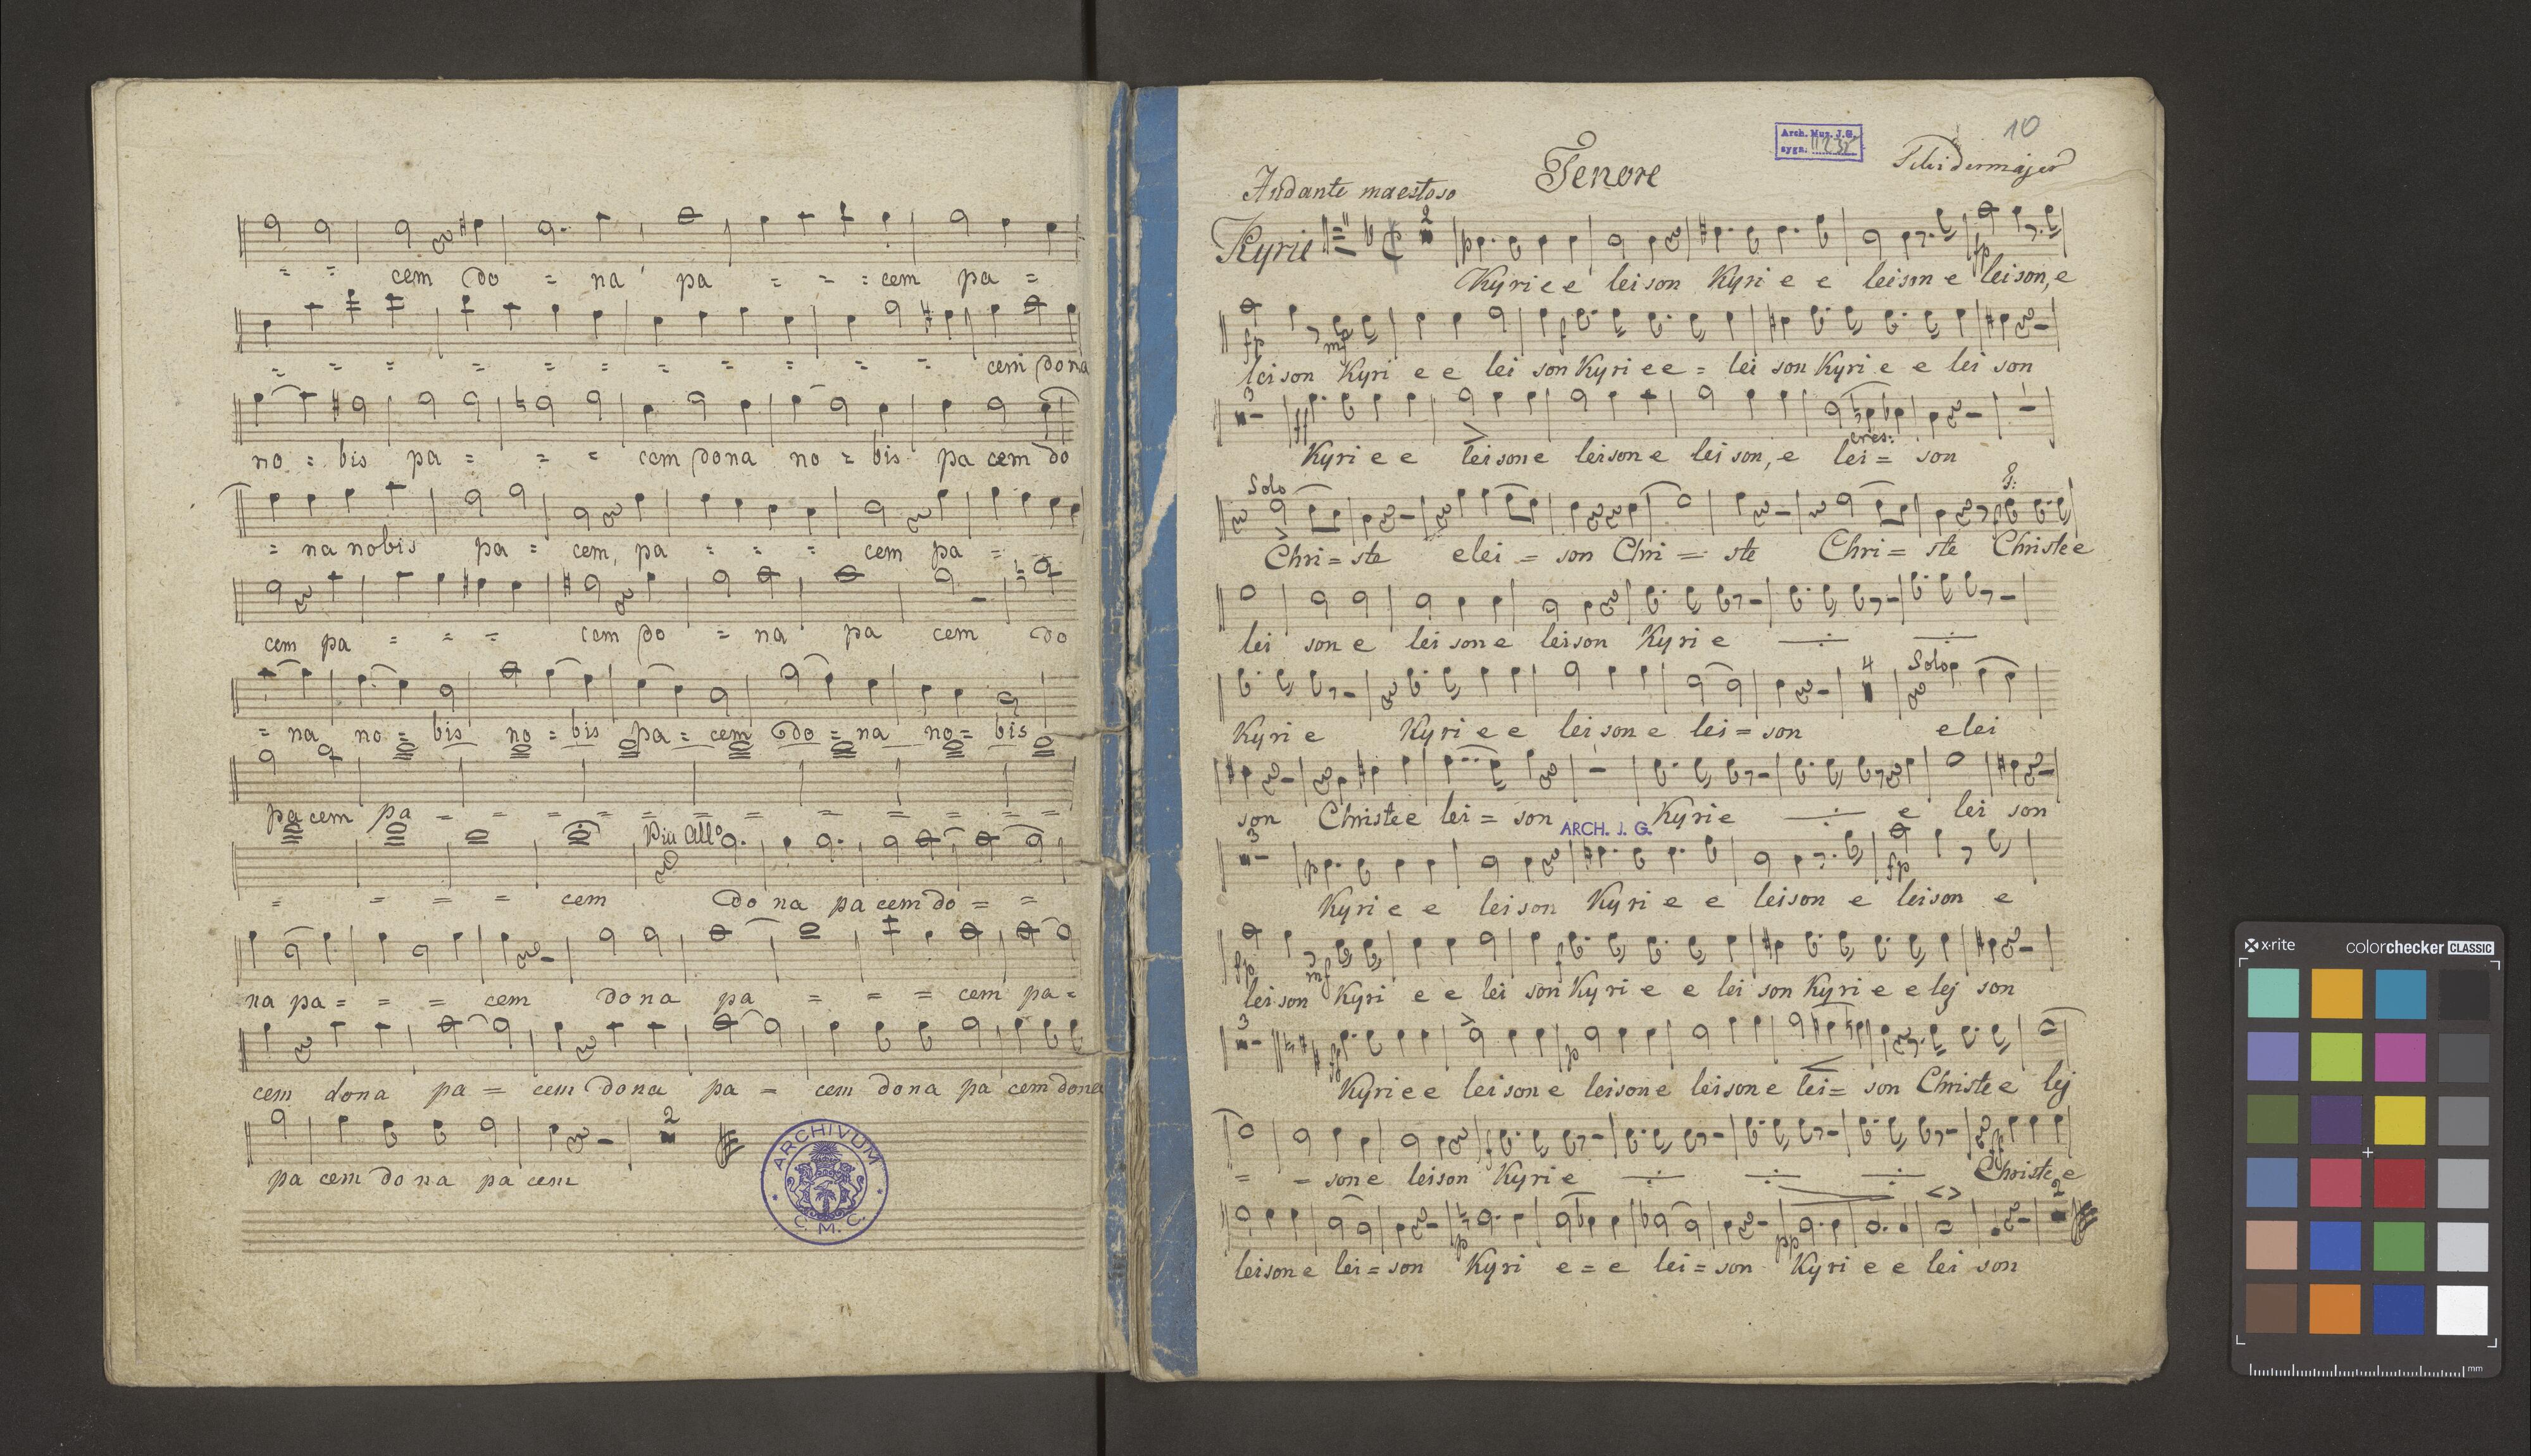 = = cem do = na pa = = = cem pa =
= = = = = = = = = = = cem dona
no = bis pa = = = cem dona no = bis pa cem do
= na nobis pa = cem, pa = = = cem pa = =
cem pa = = = cem do = na pa cem do
= na no = bis no = bis pa = cem do = na no = bis
pa cem pa = = = = = = = = = = =
Piu All°
= = = = cem do na pa cem do = =
na pa = = = cem dona pa = = = cem pa =
cem dona pa = cem dona pa = cem dona pa cem dona
2
pa cem do na pa cem
ARCHIVUM
C. M. C.
10
Arch. Muz. J.G.
sygn.
Tenore
Schidermajer
Andante maestoso
Kyrie
2 p fp
Kyri e e leison Kyri e e leison e leison, e
fp mf f
leison Kyri e e lei son Kyri e e = lei son Kyri e e lei son
3 ff cres:
Kyri e e leisone leisone lei son, e lei = son
Solo
Chri = ste elei = son Chri = ste Chri = ste Christe e
lei son e lei son e leison Kyri e
4 Solo
Kyri e Kyri e e leisone lei = son e lei
son Christe e lei = son Kyrie e lei son
ARCH. J. G.
3 p fp
Kyri e e leison Kyri e e leison e leison e
fp mf f
leison Kyri e e lei son Kyri e e lei son Kyri e e lej son
3
Kyri e e leisone leisone leisone lei = son Christe e lej
f ff
= = sone leison Kyri e Christe e
p pp 2
leisone lei = son Kyri e = e lei = son Kyri e e lei son
x-rite
colorchecker CLASSIC
mm